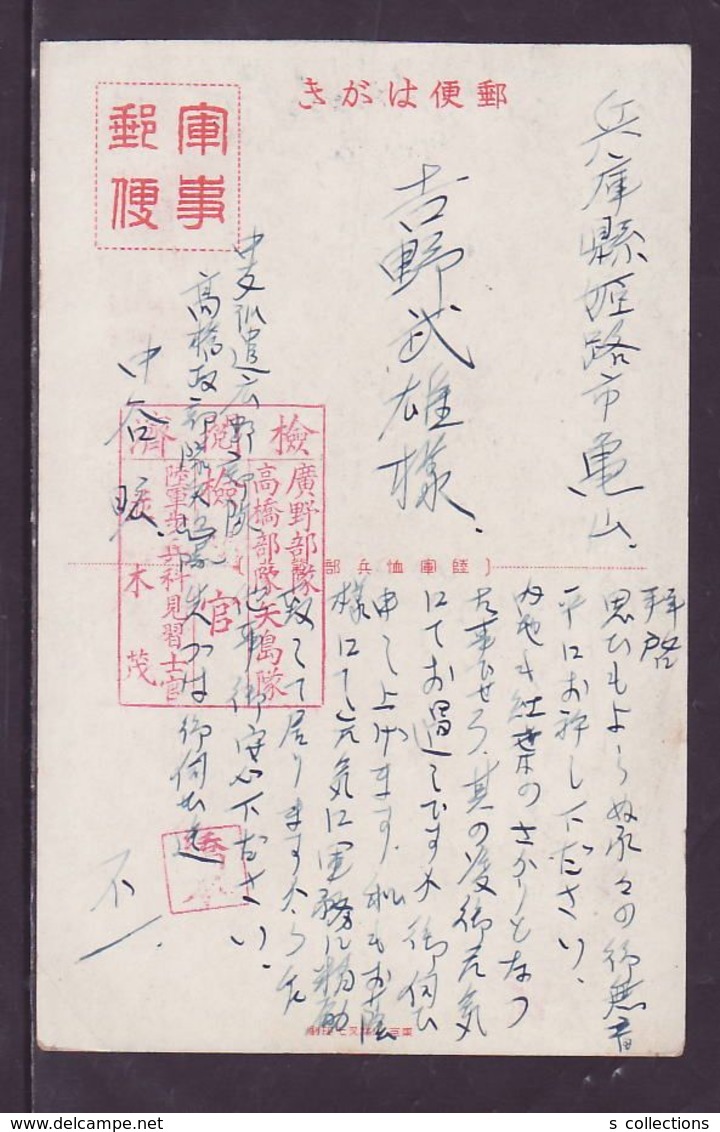 郵便はがき
軍事
郵便
兵庫縣姫路市亀山.
吉野武雄様.
中支派遣広野部隊
高橋政部隊矢島隊
中谷
檢閲濟
廣野部隊
高橋部隊矢島隊
檢 官
陸軍歩兵科見習士官
木 茂
(陸軍恤兵部
拝啓
思ひもよらぬ永々の御無音
平にお許し下ださい.
内地も紅葉のさかりとなつ
た事でせう.其の後御元気
にてお過しですか 御伺ひ
申し上げます.私もお蔭
様にて元気に軍務に精励
致して居ります
他事御安心下ださい.
先づは御伺ひ迄
不一.
s collections